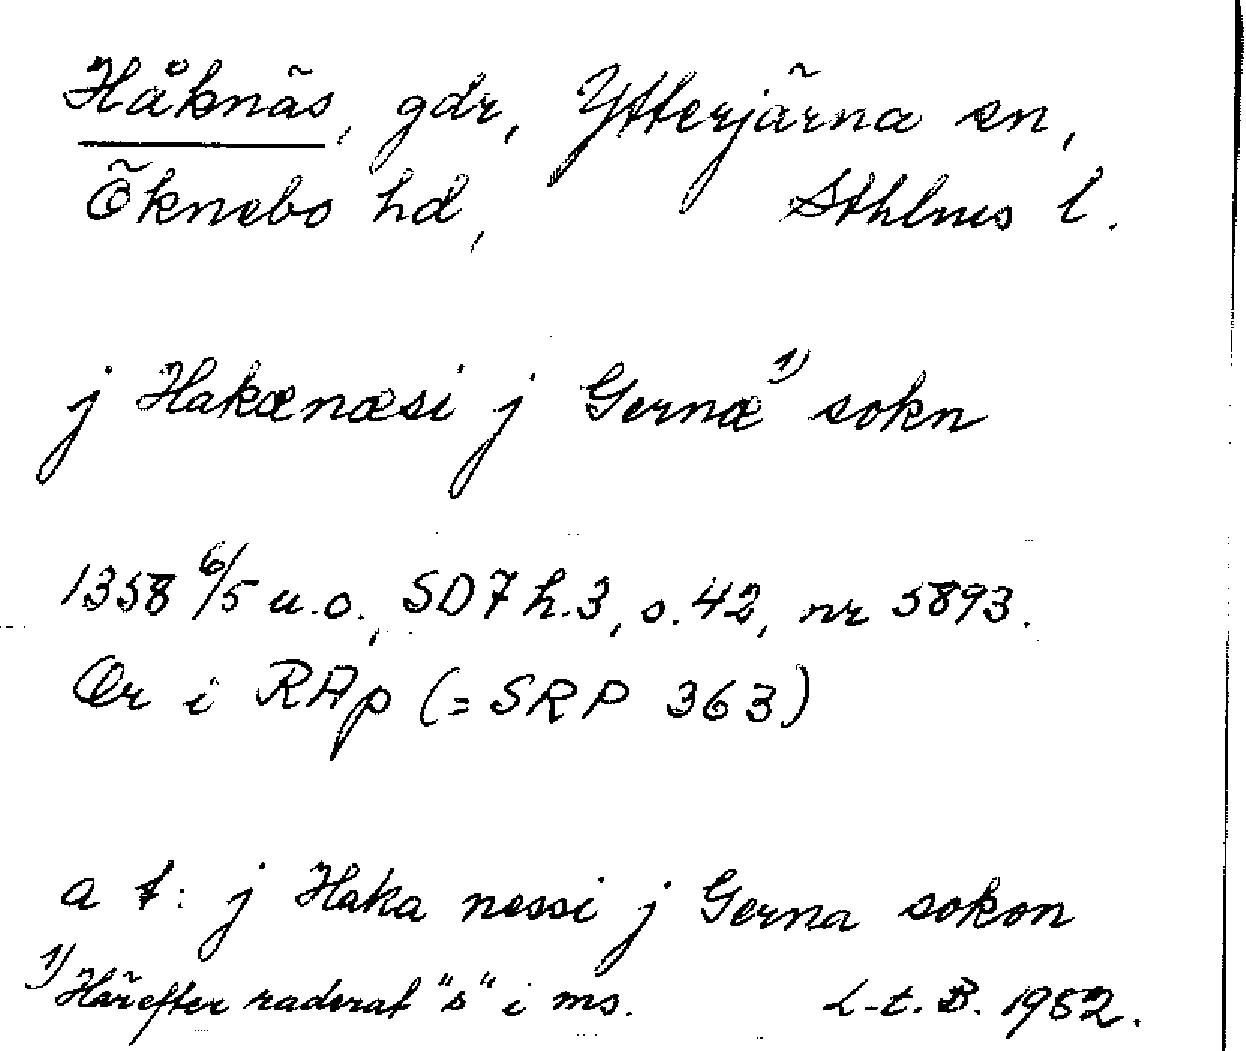 Håknäs, gdr, Ytterjärna sn,
Öknebo hd, Sthlms l.
j Hakænæsi j Gernæ¹⁾ sokn
1358 6/5 u.o., SD7 h.3, s.42, nr 5893.
Or i RAp (=SRP 363)
a t: j Haka nessi j Gerna sokon
¹⁾Härefter raderat "s" i ms. L-t. B. 1952.